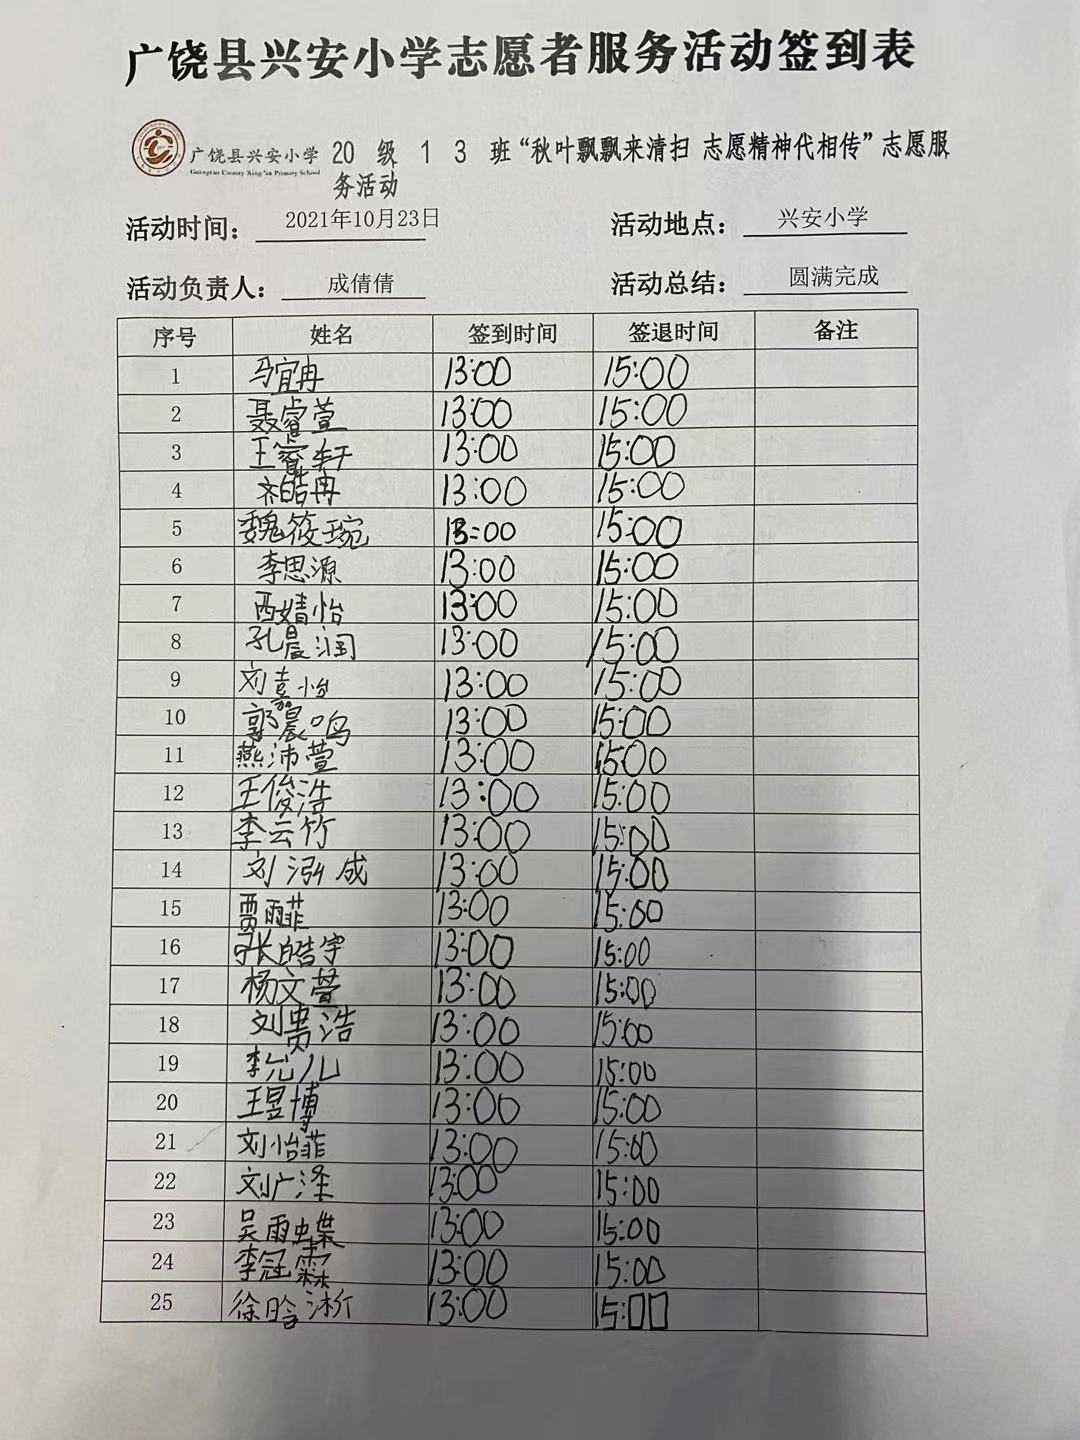 广饶县兴安小学志愿者服务活动签到表
广饶县兴安小学 20 级 1 3 班“秋叶飘飘来清扫 志愿精神代相传”志愿服
Guangrao County Xing'an Primary School
务活动
活动时间： 2021年10月23日 活动地点： 兴安小学
活动负责人： 成倩倩 活动总结： 圆满完成
序号 姓名 签到时间 签退时间 备注
1 马宜冉 13:00 15:00
2 聂睿萱 13:00 15:00
3 王睿轩 13:00 15:00
4 齐皓冉 13:00 15:00
5 魏筱琬 13:00 15:00
6 李思源 13:00 15:00
7 西婧怡 13:00 15:00
8 孔晨润 13:00 15:00
9 刘嘉怡 13:00 15:00
10 郭晨鸣 13:00 15:00
11 燕沛萱 13:00 15:00
12 王俊浩 13:00 15:00
13 李云竹 13:00 15:00
14 刘泓成 13:00 15:00
15 贾雨菲 13:00 15:00
16 张皓宇 13:00 15:00
17 杨文萱 13:00 15:00
18 刘贵浩 13:00 15:00
19 李允儿 13:00 15:00
20 王昱博 13:00 15:00
21 刘怡菲 13:00 15:00
22 刘广泽 13:00 15:00
23 吴雨蝶 13:00 15:00
24 李冠霖 13:00 15:00
25 徐晗淅 13:00 15:00